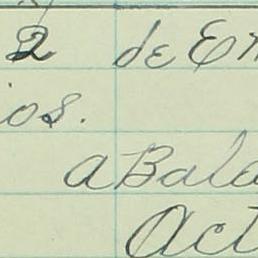 2 de En
ios.
a Bala
Act